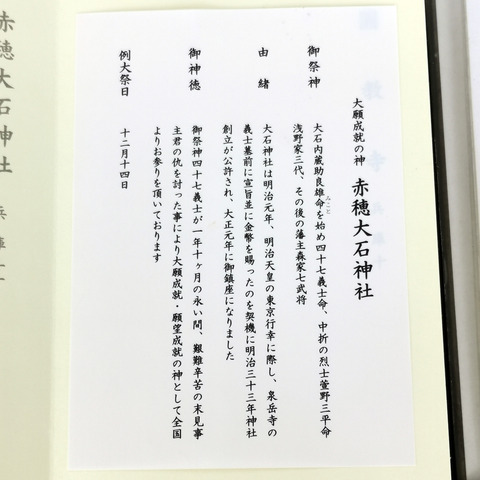 大願成就の神 赤穂大石神社
御祭神
大石内蔵助良雄命みことを始め四十七義士命、中折の烈士萱野三平命
浅野家三代、その後の藩主森家七武将
由緒
大石神社は明治元年、明治天皇の東京行幸に際し、泉岳寺の
義士墓前に宣旨並に金幣を賜ったのを契機に明治三十三年神社
創立が公許され、大正元年に御鎮座になりました
御神徳
御祭神四十七義士が一年十ヶ月の永い間、艱難辛苦の末見事
主君の仇を討った事により大願成就・願望成就の神として全国
よりお参りを頂いております
例大祭日 十二月十四日
赤穂大石神社
兵庫